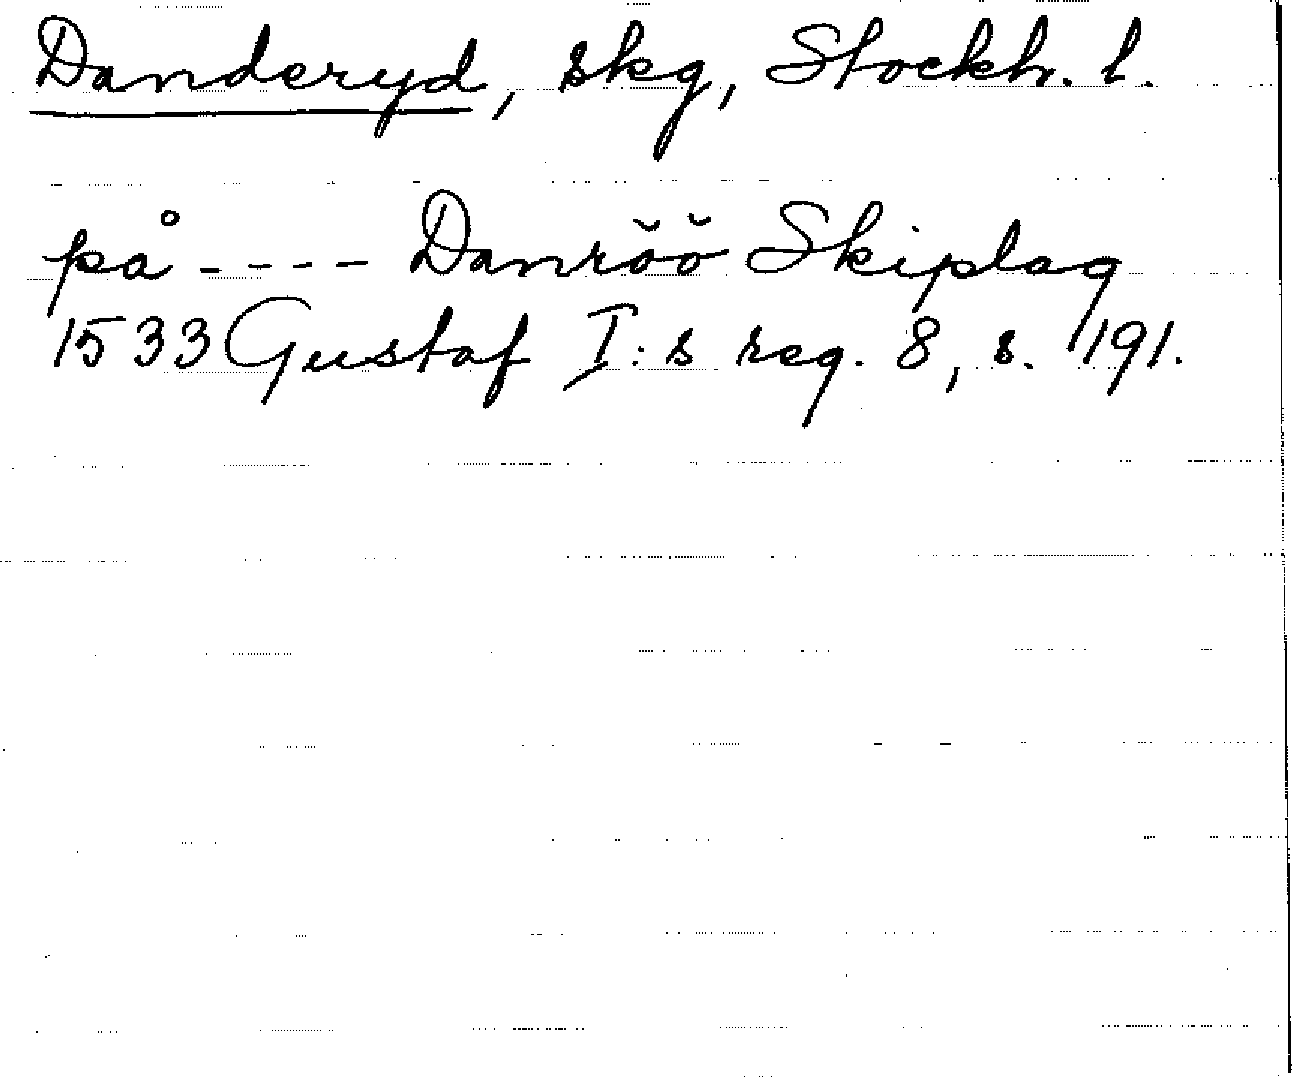 Danderyd, skg, Stockh. l.
på - - - - Danrŏŏ Skiplag
1533 Gustaf I:s reg. 8, s. 191.